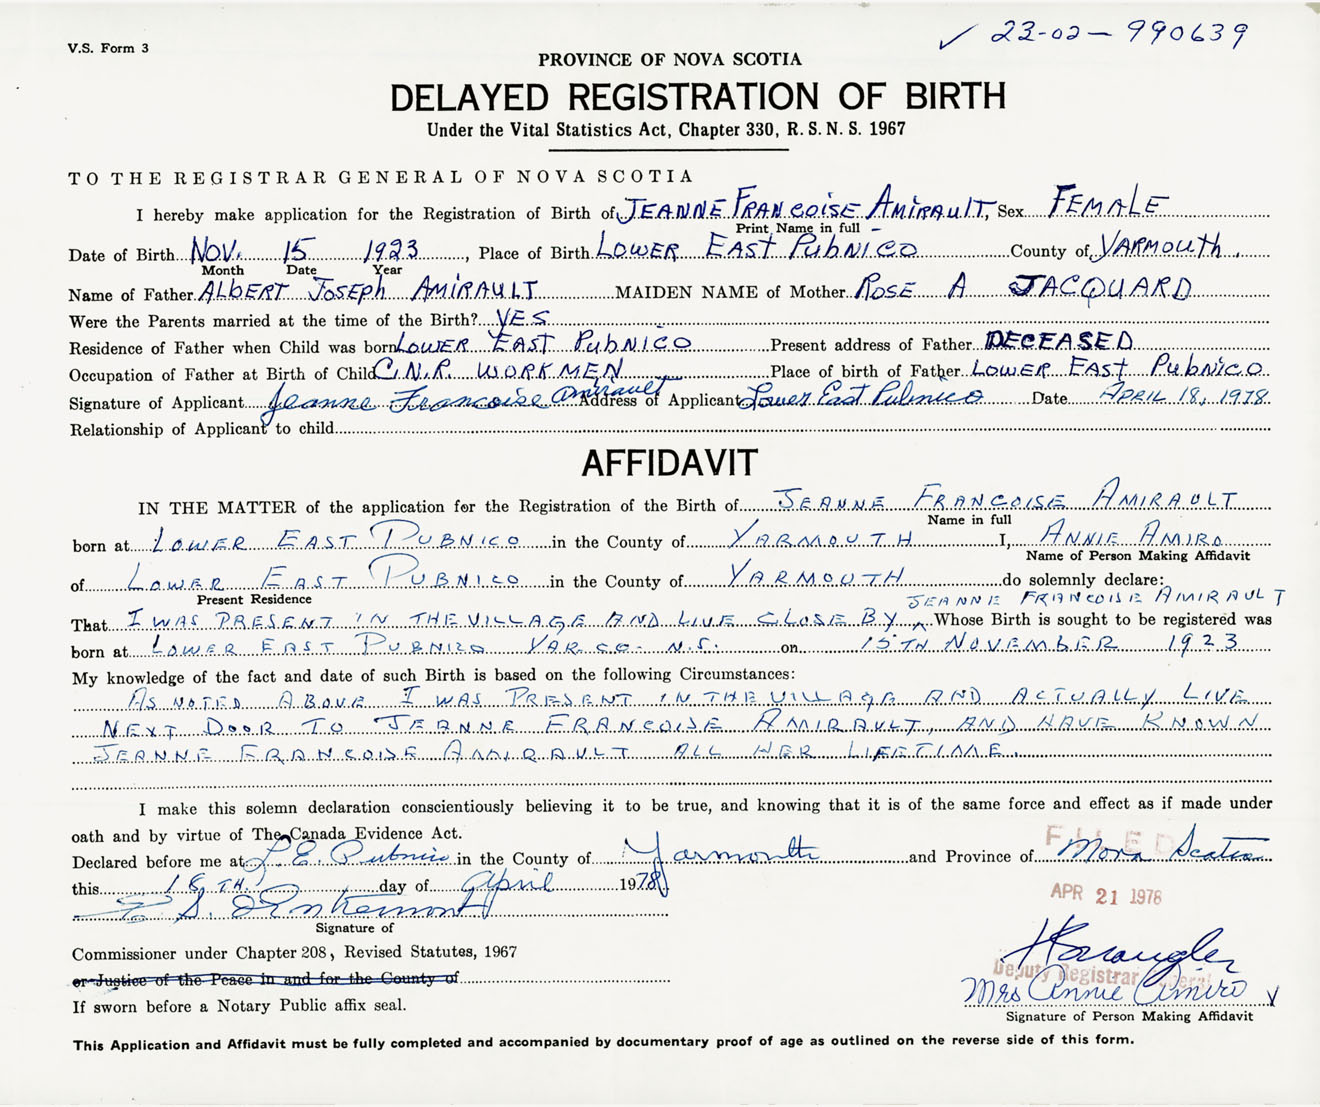 V.S. Form 3
✓ 23-02-990639
PROVINCE OF NOVA SCOTIA
DELAYED REGISTRATION OF BIRTH
Under the Vital Statistics Act, Chapter 330, R. S. N. S. 1967
TO THE REGISTRAR GENERAL OF NOVA SCOTIA
I hereby make application for the Registration of Birth of JEANNE FRANCOISE AMIRAULT, Sex FEMALE
Print Name in full
Date of Birth NOV. 15 1923, Place of Birth LOWER EAST PUBNICO County of YARMOUTH
Month Date Year
Name of Father ALBERT JOSEPH AMIRAULT MAIDEN NAME of Mother ROSE A JACQUARD
Were the Parents married at the time of the Birth? YES
Residence of Father when Child was born LOWER EAST PUBNICO Present address of Father DECEASED
Occupation of Father at Birth of Child C.N.R. WORKMEN Place of birth of Father LOWER EAST PUBNICO
Signature of Applicant Jeanne Francoise Amirault Address of Applicant Lower East Pubnico Date APRIL 18, 1978
Relationship of Applicant to child
AFFIDAVIT
IN THE MATTER of the application for the Registration of the Birth of JEANNE FRANCOISE AMIRAULT
Name in full
born at LOWER EAST PUBNICO in the County of YARMOUTH I, ANNIE AMIRO
Name of Person Making Affidavit
of LOWER EAST PUBNICO in the County of YARMOUTH do solemnly declare:
Present Residence
JEANNE FRANCOISE AMIRAULT
That I WAS PRESENT IN THE VILLAGE AND LIVE CLOSE BY Whose Birth is sought to be registered was
born at LOWER EAST PUBNICO YAR. CO. N.S. on 15TH NOVEMBER 1923
My knowledge of the fact and date of such Birth is based on the following Circumstances:
AS NOTED ABOVE I WAS PRESENT IN THE VILLAGE AND ACTUALLY LIVE
NEXT DOOR TO JEANNE FRANCOISE AMIRAULT, AND HAVE KNOWN
JEANNE FRANCOISE AMIRAULT ALL HER LIFETIME.
I make this solemn declaration conscientiously believing it to be true, and knowing that it is of the same force and effect as if made under
oath and by virtue of The Canada Evidence Act.
Declared before me at L. E. Pubnico in the County of Yarmouth and Province of Nova Scotia
FILED
this 18TH. day of April 1978
APR 21 1978
S. d'Entremont
Signature of
Commissioner under Chapter 208, Revised Statutes, 1967
Deputy Registrar General
or Justice of the Peace in and for the County of
Mrs Annie Amiro
If sworn before a Notary Public affix seal.
Signature of Person Making Affidavit
This Application and Affidavit must be fully completed and accompanied by documentary proof of age as outlined on the reverse side of this form.